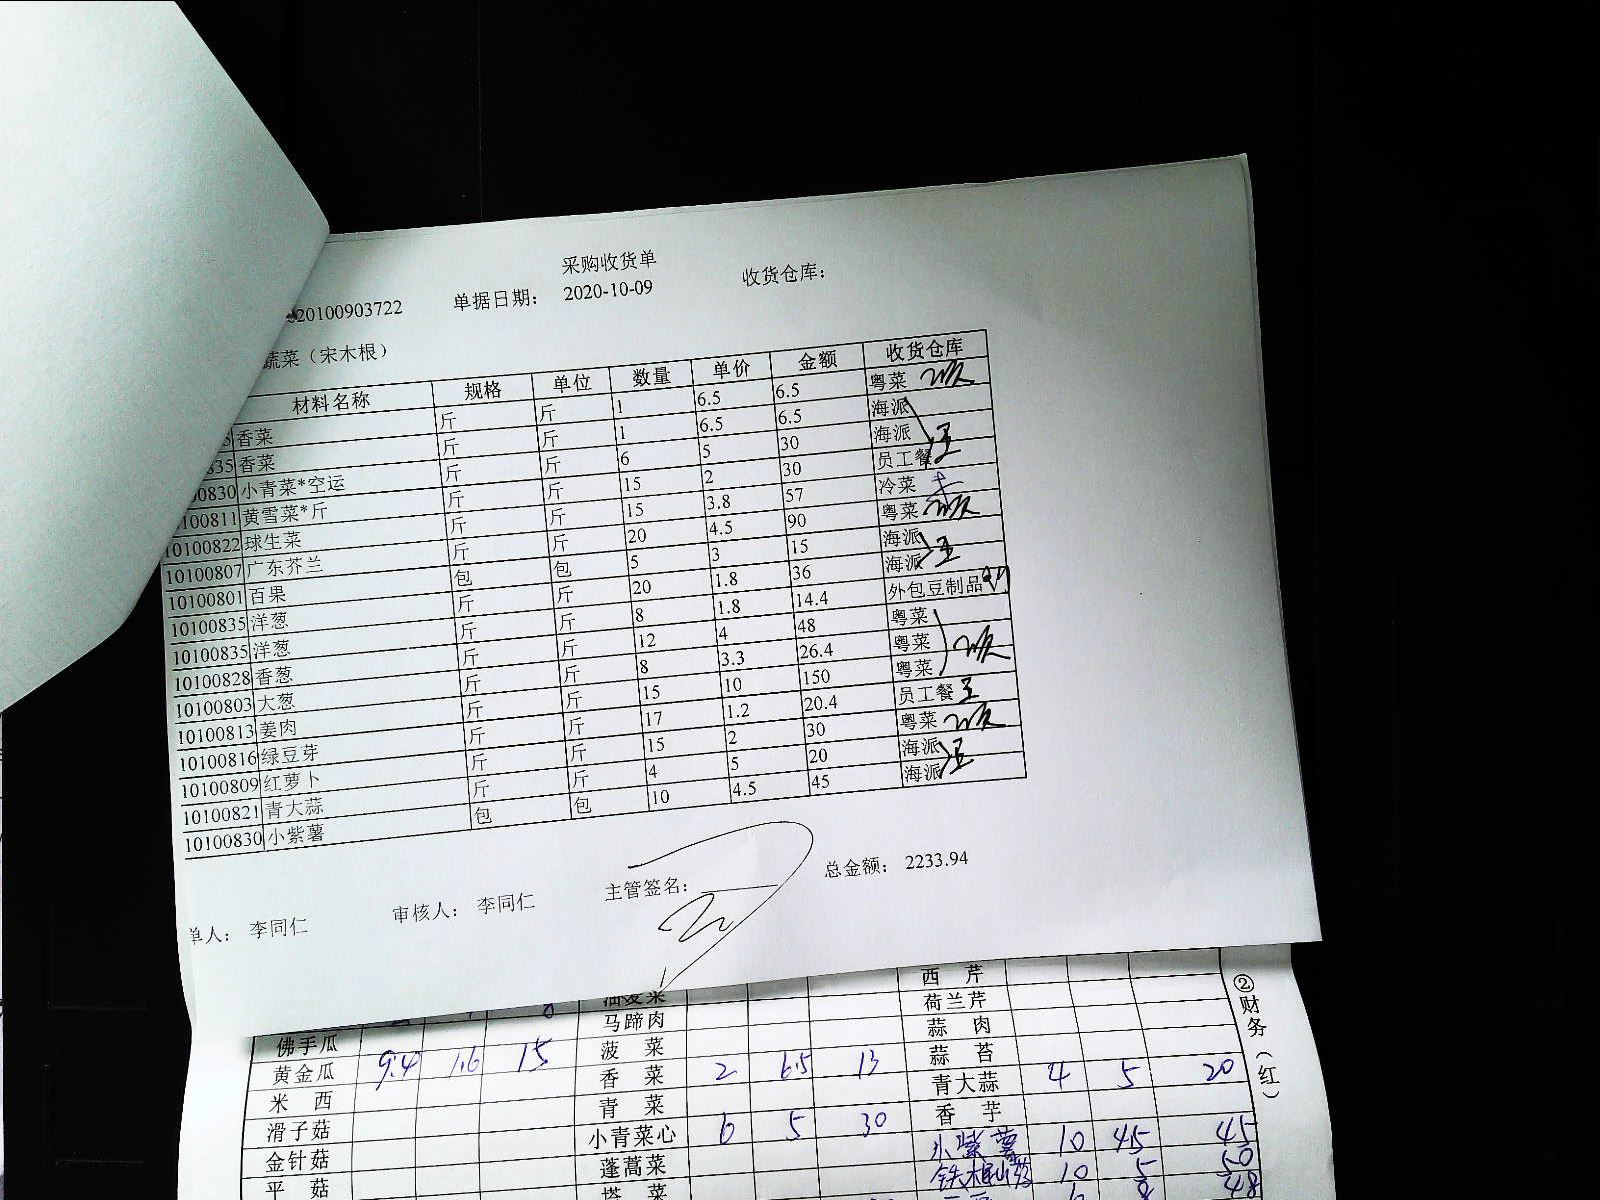 采购收货单
20100903722 单据日期： 2020-10-09 收货仓库：
蔬菜（宋木根）
材料名称 规格 单位 数量 单价 金额 收货仓库
香菜 斤 斤 1 6.5 6.5 粤菜
835 香菜 斤 斤 1 6.5 6.5 海派
00830 小青菜*空运 斤 斤 6 5 30 海派 王
100811 黄雪菜*斤 斤 斤 15 2 30 员工餐
10100822 球生菜 斤 斤 15 3.8 57 冷菜
10100807 广东芥兰 斤 斤 20 4.5 90 粤菜
10100801 百果 包 包 5 3 15 海派 王
10100835 洋葱 斤 斤 20 1.8 36 海派
10100835 洋葱 斤 斤 8 1.8 14.4 外包豆制品
10100828 香葱 斤 斤 12 4 48 粤菜
10100803 大葱 斤 斤 8 3.3 26.4 粤菜
10100813 姜肉 斤 斤 15 10 150 粤菜
10100816 绿豆芽 斤 斤 17 1.2 20.4 员工餐 王
10100809 红萝卜 斤 斤 15 2 30 粤菜
10100821 青大蒜 斤 斤 4 5 20 海派 王
10100830 小紫薯 包 包 10 4.5 45 海派
单人： 李同仁 审核人： 李同仁 主管签名： 总金额： 2233.94
油麦菜 西芹
马蹄肉 荷兰芹
佛手瓜 菠菜 蒜肉
黄金瓜 9.4 1.6 15 香菜 2 6.5 13 蒜苔
米西 青菜 青大蒜 4 5 20
滑子菇 小青菜心 6 5 30 香芋
金针菇 蓬蒿菜 小紫薯 10 4.5 45
平菇 塔菜 铁棍山药 10 5 50
6 8 48
②财务（红）